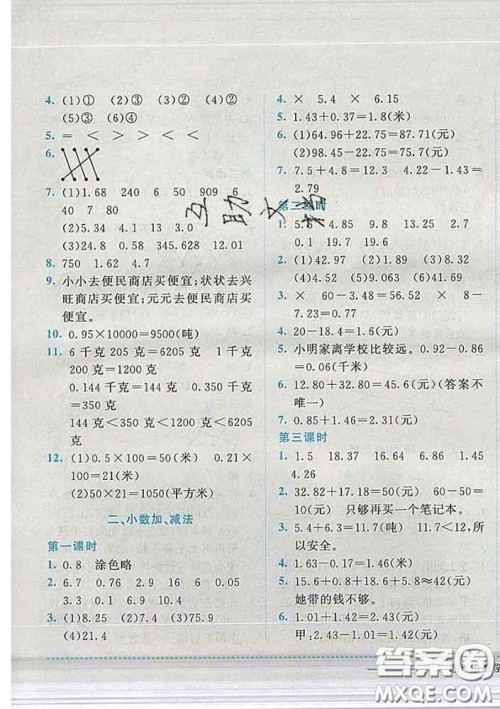 4. (1)① (2)③ (3)② (4)②
(5)③ (6)④
5. = < > > < >
6.
7. (1)1.68 240 6 50 909 6
40 7 80
(2)5.34 4.1 13 3.0
(3)24.8 0.38 345.628 12.01
8. 750 1.62 4.7
9. 小小去便民商店买便宜;状状去兴
旺商店买便宜;元元去便民商店买
便宜。
10. 0.95×10000=9500(吨)
11. 6千克205克=6205克 1千克
200克=1200克
0.144千克=144克 0.35千克
=350克
144克<350克<1200克<6205
克
12. (1)0.5×100=50(米) 0.21×
100=21(米)
(2)50×21=1050(平方米)
二、小数加、减法
第一课时
1. 0.8 涂色略
2. 6.7 0.76 2.9 16 0.6
3.3 0.1 6.9 10.4
3. (1)8.25 (2)3.4 (3)75.9
(4)21.4
4. × 5.4 × 6.15
5. 1.43+0.37=1.8(米)
6. (1)64.96+22.75=87.71(元)
(2)98.45-22.75=75.7(元)
7. 7.5+4.2=11.7 7.12-4.33=
2.79
课时
1. 5.6 4.85 9.8 13.25 2.7
0.1 19.7 19.6
2. (1)42.92 (2)81.59 (3)2.5
(4)17.51
3. × 60-3.48=56.52 × 8-
7.23=0.77
4. 20-18.4=1.6(元)
5. 小明家离学校比较远。0.92-0.86
=0.06(千米)
6. 12.80+32.80=45.6(元)(答案不
唯一)
7. 0.85+1.46=2.31(元)
第三课时
1. 1.5 18.37 16.84 6.86 6.37
4.26
2. 32.82+17.18=50(元) 60-50=
10(元) 只够再买一个笔记本。
3. 5.4+6.3=11.7(米) 11.7<12,所
以安全。
4. 1.63-0.17=1.46(米)
5. 15.6+0.8+18+5.8≈42(元)
她带的钱不够。
6. 1.01+1.42=2.43(元)
甲:2.43-1.01=1.42(元)
互助文档
答案圈
MXQE.COM